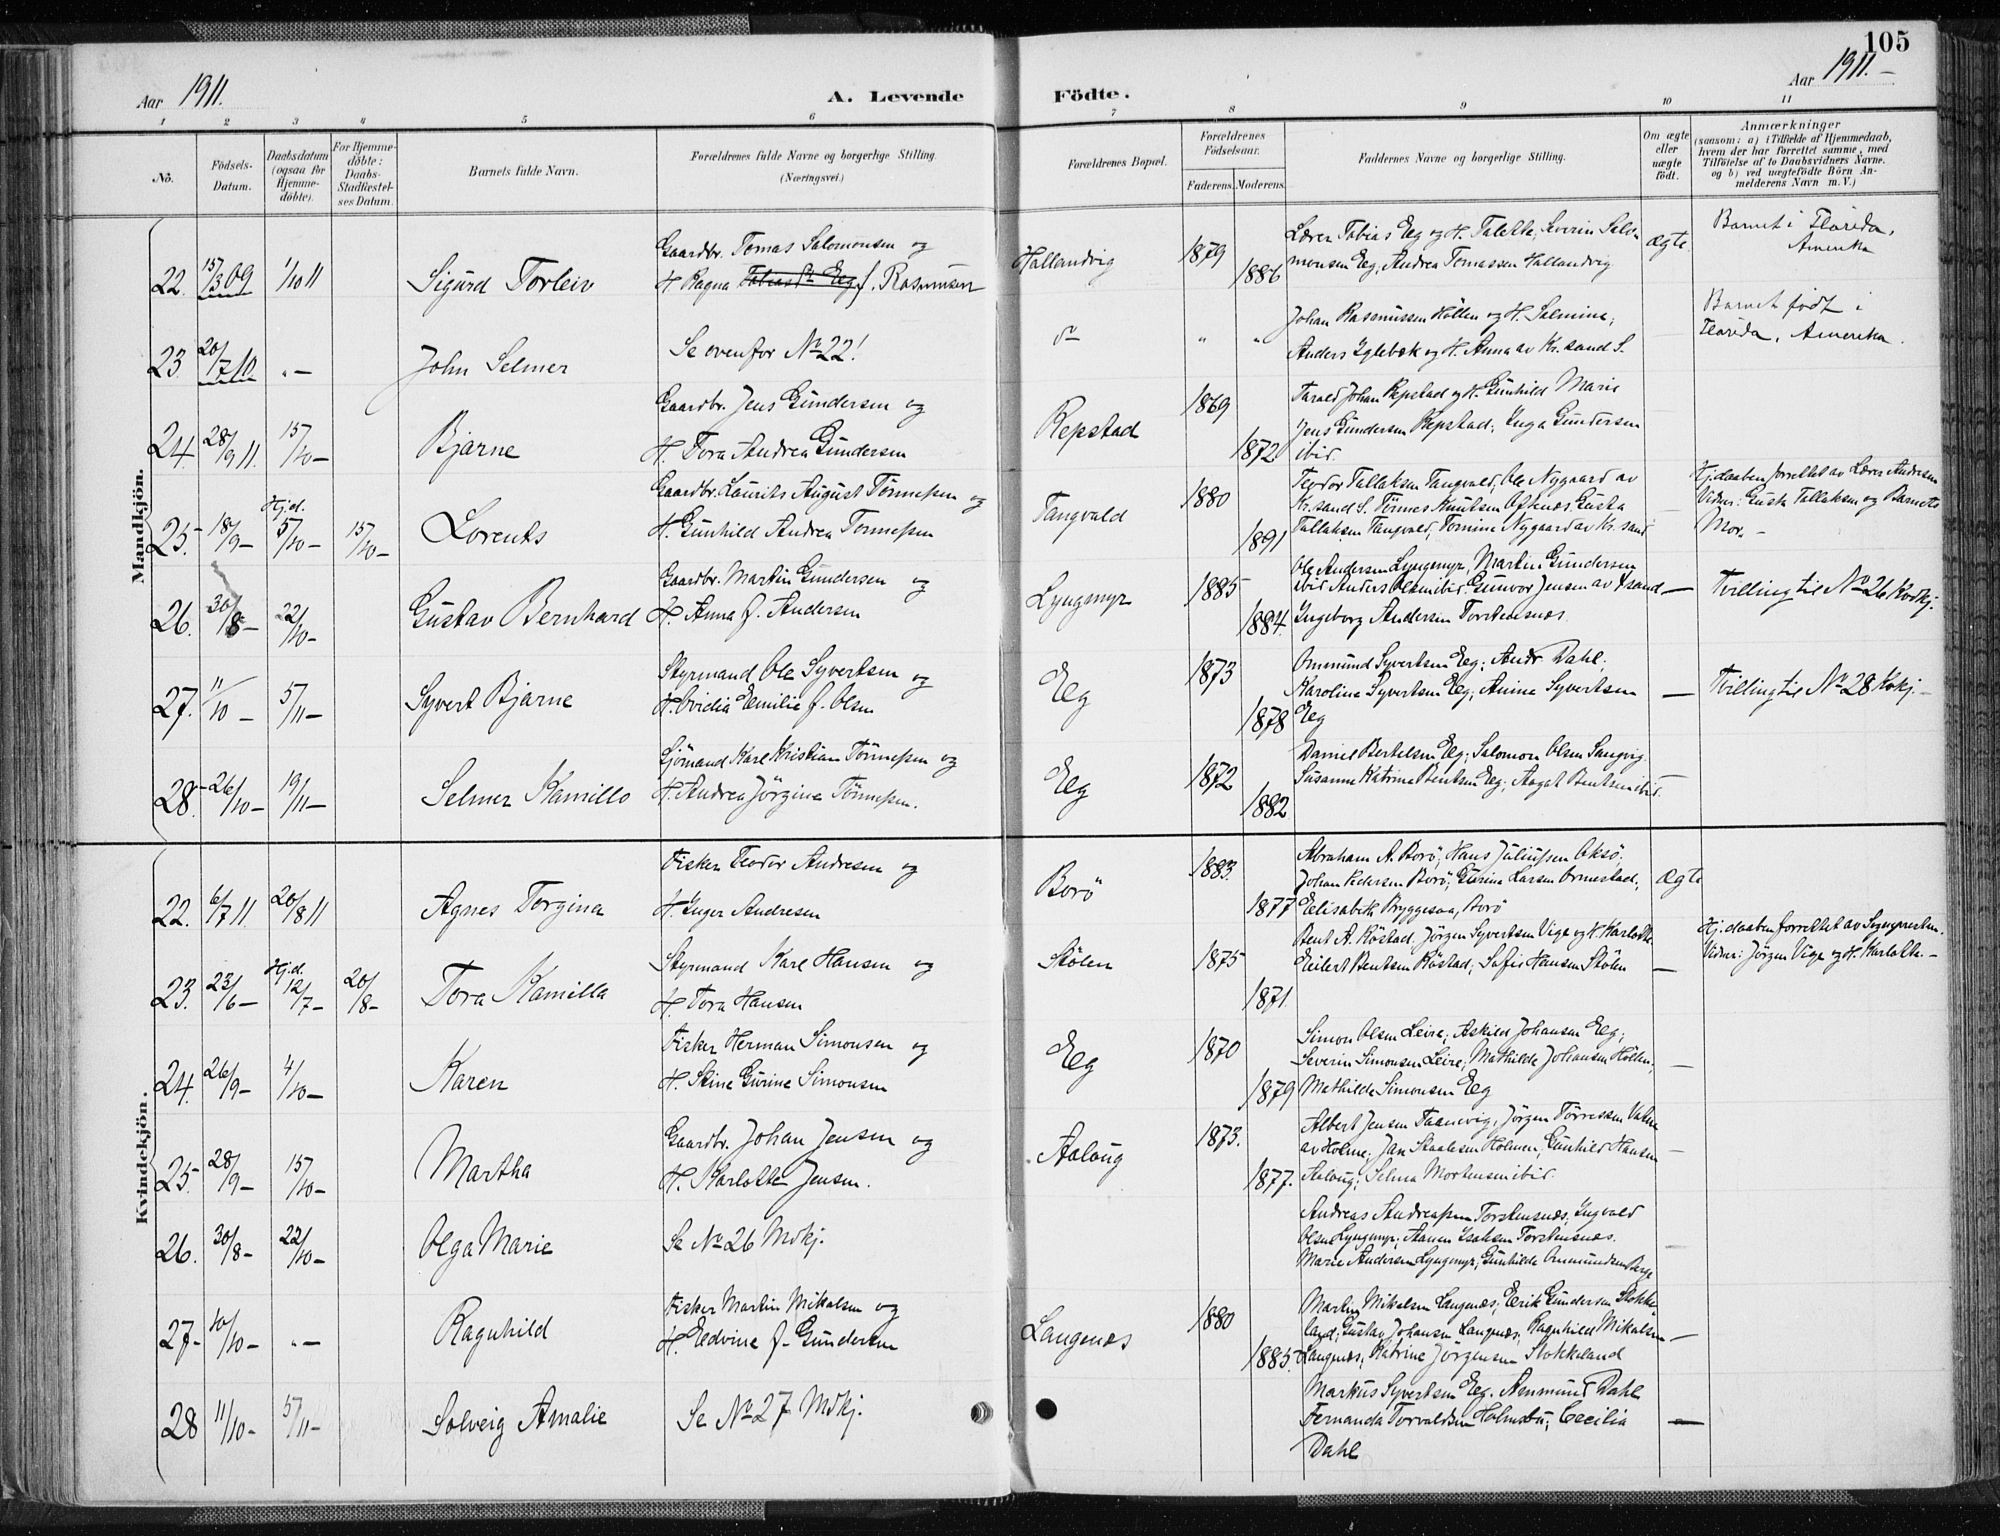 105
Aar 1911.
A. Levende Födte.
Aar 1911.-
1 2 3 4 5 6 7 8 9 10 11
Nô.
Födsels-Datum.
Daabsdatum (ogsaa for Hjemme-döbte).
For Hjemme-döbte: Daabs-Stadfæstel-ses Datum.
Barnets fulde Navn.
Forældrenes fulde Navne og borgerlige Stilling. (Næringsvei.)
Forældrenes Bopæl.
Forældrenes Födselsaar.
Faderens. Moderens.
Faddernes Navne og borgerlige Stilling.
Om ægte eller uægte født.
Anmærkninger
(saasom: a) i Tilfælde af Hjemmedaab, hvem der har forrettet samme, med Tilföielse af to Daabsvidners Navne. og b) ved uægtefödte Börn An-melderens Navn m. V.)
Mandkjön.
22. 15/3 09 1/10 11 Sigurd Torleiv
Gaardbr. Tomas Salomonsen og
H. Ragna f. Rasmussen
Hallandvig 1879 1886
Lærer Tobias Eeg og H. Talette; Severin Salo-
monsen Eeg; Andrea Tomassen Hallandvig
ægte
Barnet i Florida, Amerika
23. 20/7 10 "- John Selmer
Se ovenfor No 22!
" "
Johan Rasmussen Höllen og H. Salmine;
Anders Iglebæk og H. Anna av Kr.sand S.
Barnet födt i
Florida, Amerika.
24. 28/9 11. 15/10- Bjarne
Gaardbr. Jens Gundersen og
H. Tora Andrea Gundersen
Repstad 1869 1872
Tarald Johan Repstad og H. Gunhild Marie
Jens Gundersen Repstad; Inga Gundersen
ibid.
25- 18/9- Hj.d. 5/10- 15/10- Lorents
Gaardbr. Laurits August Tönnessen og
H. Gunhild Andrea Tönnessen
Tangvald 1880 1891
Teodor Tallaksen Tangvald; Ole Nygaard av
Kr.sand S. Törnes Knutsen Oftenes; Gusta
Tallaksen Tangvald; Tomine Nygaard av Kr.sand
Hj.daaben forrettet av Lærer Andresen
Vidner: Gusta Tallaksen og Barnets
Mor. -
26. 30/8- 22/10- Gustav Bernhard
Gaardbr. Martin Gundersen og
H. Anna f. Andersen
Lyngmyr 1885 1884
Ole Andersen Lyngmyr, Martin Gundersen
ibid. Anders Olsen ibid. Gunvor Jensen av Xsand
Ingeborg Andersen Torstensnæs
- Tvilling til No 26 Kvdkj.
27. 11/10- 5/11- Syvert Bjarne
Styrmand Ole Syvertsen og
H. Ovidia Emilie f. Olsen
Eeg 1873 1878
Ommund Syvertsen Eeg; Andr. Dahl;
Karoline Syvertsen Eeg; Anine Syvertsen
Eeg
- Tvilling til No 28 Kvkj. -
28.- 26/10- 19/11- Selmer Kamillo
Sjömand Karl Kristian Tönnessen og
H. Andrea Jörgine Tönnessen.
Eeg 1872 1882
Daniel Bertelsen Eeg; Salomon Olsen Sangvig
Susanne Katrine Bentsen Eeg; Aagot Bentsen ibid.
-
Kvindekjön.
22. 6/7 11 20/8 11 Agnes Torgina
Fisker Teodor Andresen og
H. Inger Andresen
Borö 1883 1877
Abraham A. Borö; Hans Juliussen Oksö;
Johan Pedersen Borö; Gurine Larsen Ormestad;
Elisabeth Bryggesaa, Borö
Ægte
23. 23/6- Hj.d. 12/7- 20/8- Tora Kamilla
Styrmand Karl Hansen og
H. Tora Hansen
Stölen 1875 1871.
Bent A. Röstad. Jörgen Syvertsen Vige og H. Karlotte.
Eilert Bentsen Röstad; Sofie Hansen Stölen
-
Hj.daaben forrettet av Sognepresten.
Vidner: Jörgen Vige og H. Karlotte. -
24. 26/9- 4/10- Karen
Fisker Herman Simonsen og
H. Stine Gurine Simonsen
Eeg 1870 1879
Simon Olsen Leire; Askild Johansen Eeg;
Severin Simonsen Leire; Mathilde Johansen Höllen.
Mathilde Simonsen Eeg
-
25- 28/9- 15/10- Martha
Gaardbr. Johan Jensen og
H. Karlotte Jensen.
Aaloug 1873. 1877.
Albert Jensen Taanevig, Jörgen Törressen Vatne
av Holme; Jan Staalesen Holmen, Gunhild Hansen
Aaloug; Selma Mortensen ibid.
-
26. 30/8- 22/10- Olga Marie
Se No 26 Mdkj.
Andreas Andreassen Torstensnæs, Ingvald
Olsen Lyngmyr; Aanen Isaksen Torstensnæs.
Marie Andersen Lyngmyr; Gunhilde Ommundsen Berge
-
27- 10/10- "- Ragnhild
Fisker Martin Mikalsen og
H. Edvine f. Gundersen
Langenes 1880 1885.
Martin Mikalsen Langenæs; Erik Gundersen Stokke-
land; Gustav Johansen Langenæs; Ragnhild Mikalsen
Langenæs; Katrine Jörgensen Stokkeland
-
28 11/10- 5/11- Solveig Amalie
Se No 27 Mdkj.
Markus Syvertsen Eeg. Aanmund Dahl
Fernanda Torvaldsen Holmsbu; Cecilia
Dahl
-